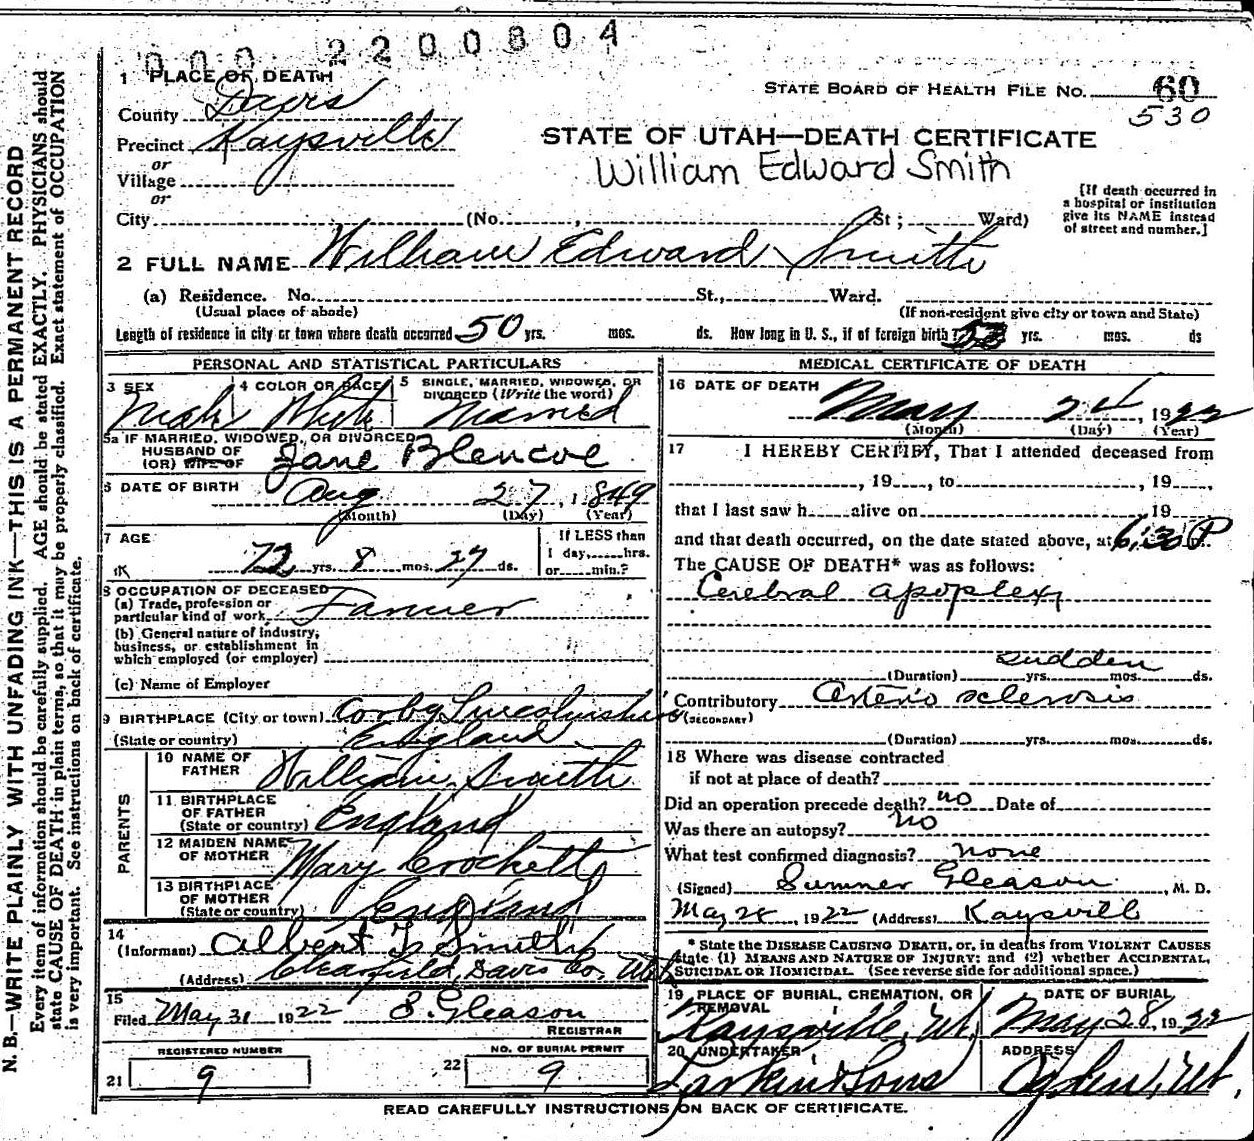 000 2200804
1 PLACE OF DEATH
STATE BOARD OF HEALTH FILE NO. 60
530
County Davis
Precinct Kaysville
or
Village
or
STATE OF UTAH—DEATH CERTIFICATE
William Edward Smith
[If death occurred in
a hospital or institution
give its NAME instead
of street and number.]
City (No. , St; Ward)
2 FULL NAME William Edward Smith
(a) Residence. No. St., Ward.
(Usual place of abode) (If non-resident give city or town and State)
Length of residence in city or town where death occurred 50 yrs. mos. ds. How long in U. S., if of foreign birth? 53 yrs. mos. ds
PERSONAL AND STATISTICAL PARTICULARS
3 SEX 4 COLOR OR RACE 5 SINGLE, MARRIED, WIDOWED, OR
DIVORCED (Write the word)
Male White Married
5a IF MARRIED, WIDOWED, OR DIVORCED
HUSBAND OF
(OR) WIFE OF Jane Blencoe
6 DATE OF BIRTH Aug 27, 1849
(Month) (Day) (Year)
7 AGE
72 yrs. 8 mos. 27 ds.
If LESS than
1 day, hrs.
or min.?
8 OCCUPATION OF DECEASED
(a) Trade, profession or
particular kind of work, Farmer
(b) General nature of industry,
business, or establishment in
which employed (or employer)
(c) Name of Employer
9 BIRTHPLACE (City or town) Corby Lincolnshire
(State or country) England
PARENTS
10 NAME OF
FATHER William Smith
11 BIRTHPLACE
OF FATHER
(State or country) England
12 MAIDEN NAME
OF MOTHER Mary Crockett
13 BIRTHPLACE
OF MOTHER
(State or country) England
14
(Informant) Albert T. Smith
(Address) Clearfield, Davis Co. Utah
15
Filed May 31 1922 S. Gleason
REGISTRAR
REGISTERED NUMBER
21 9
NO. OF BURIAL PERMIT
22 9
MEDICAL CERTIFICATE OF DEATH
16 DATE OF DEATH
May 24, 1922
(Month) (Day) (Year)
17 I HEREBY CERTIFY, That I attended deceased from
, 19 , to , 19 ,
that I last saw h alive on , 19
and that death occurred, on the date stated above, at 6:30 P m.
The CAUSE OF DEATH* was as follows:
Cerebral apoplexy
sudden
(Duration) yrs. mos. ds.
Contributory Arterio sclerosis
(SECONDARY)
(Duration) yrs. mos. ds.
18 Where was disease contracted
if not at place of death?
Did an operation precede death? no Date of
Was there an autopsy? no
What test confirmed diagnosis? none
(Signed) Sumner Gleason, M. D.
May 28, 1922 (Address) Kaysville
* State the DISEASE CAUSING DEATH, or, in deaths from VIOLENT CAUSES
state (1) MEANS AND NATURE OF INJURY; and (2) whether ACCIDENTAL,
SUICIDAL OR HOMICIDAL. (See reverse side for additional space.)
19 PLACE OF BURIAL, CREMATION, OR
REMOVAL
Kaysville, Ut.
DATE OF BURIAL
May 28, 1922
20 UNDERTAKER
Larkin & Sons
ADDRESS
Ogden, Ut.
READ CAREFULLY INSTRUCTIONS ON BACK OF CERTIFICATE.
N. B.—WRITE PLAINLY WITH UNFADING INK—THIS IS A PERMANENT RECORD
Every item of information should be carefully supplied. AGE should be stated EXACTLY. PHYSICIANS should
state CAUSE OF DEATH in plain terms, so that it may be properly classified. Exact statement of OCCUPATION
is very important. See instructions on back of certificate.